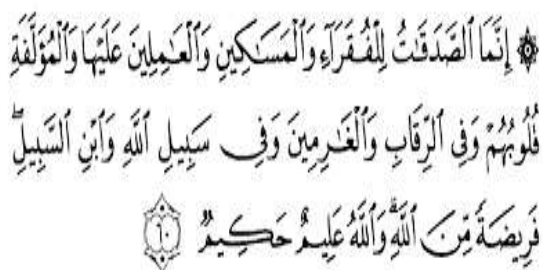 ۞ إِنَّمَا ٱلصَّدَقَـٰتُ لِلْفُقَرَآءِ وَٱلْمَسَـٰكِينِ وَٱلْعَـٰمِلِينَ عَلَيْهَا وَٱلْمُؤَلَّفَةِ
قُلُوبُهُمْ وَفِى ٱلرِّقَابِ وَٱلْغَـٰرِمِينَ وَفِى سَبِيلِ ٱللَّهِ وَٱبْنِ ٱلسَّبِيلِ ۖ
فَرِيضَةً مِّنَ ٱللَّهِ ۗ وَٱللَّهُ عَلِيمٌ حَكِيمٌ ۝٦٠